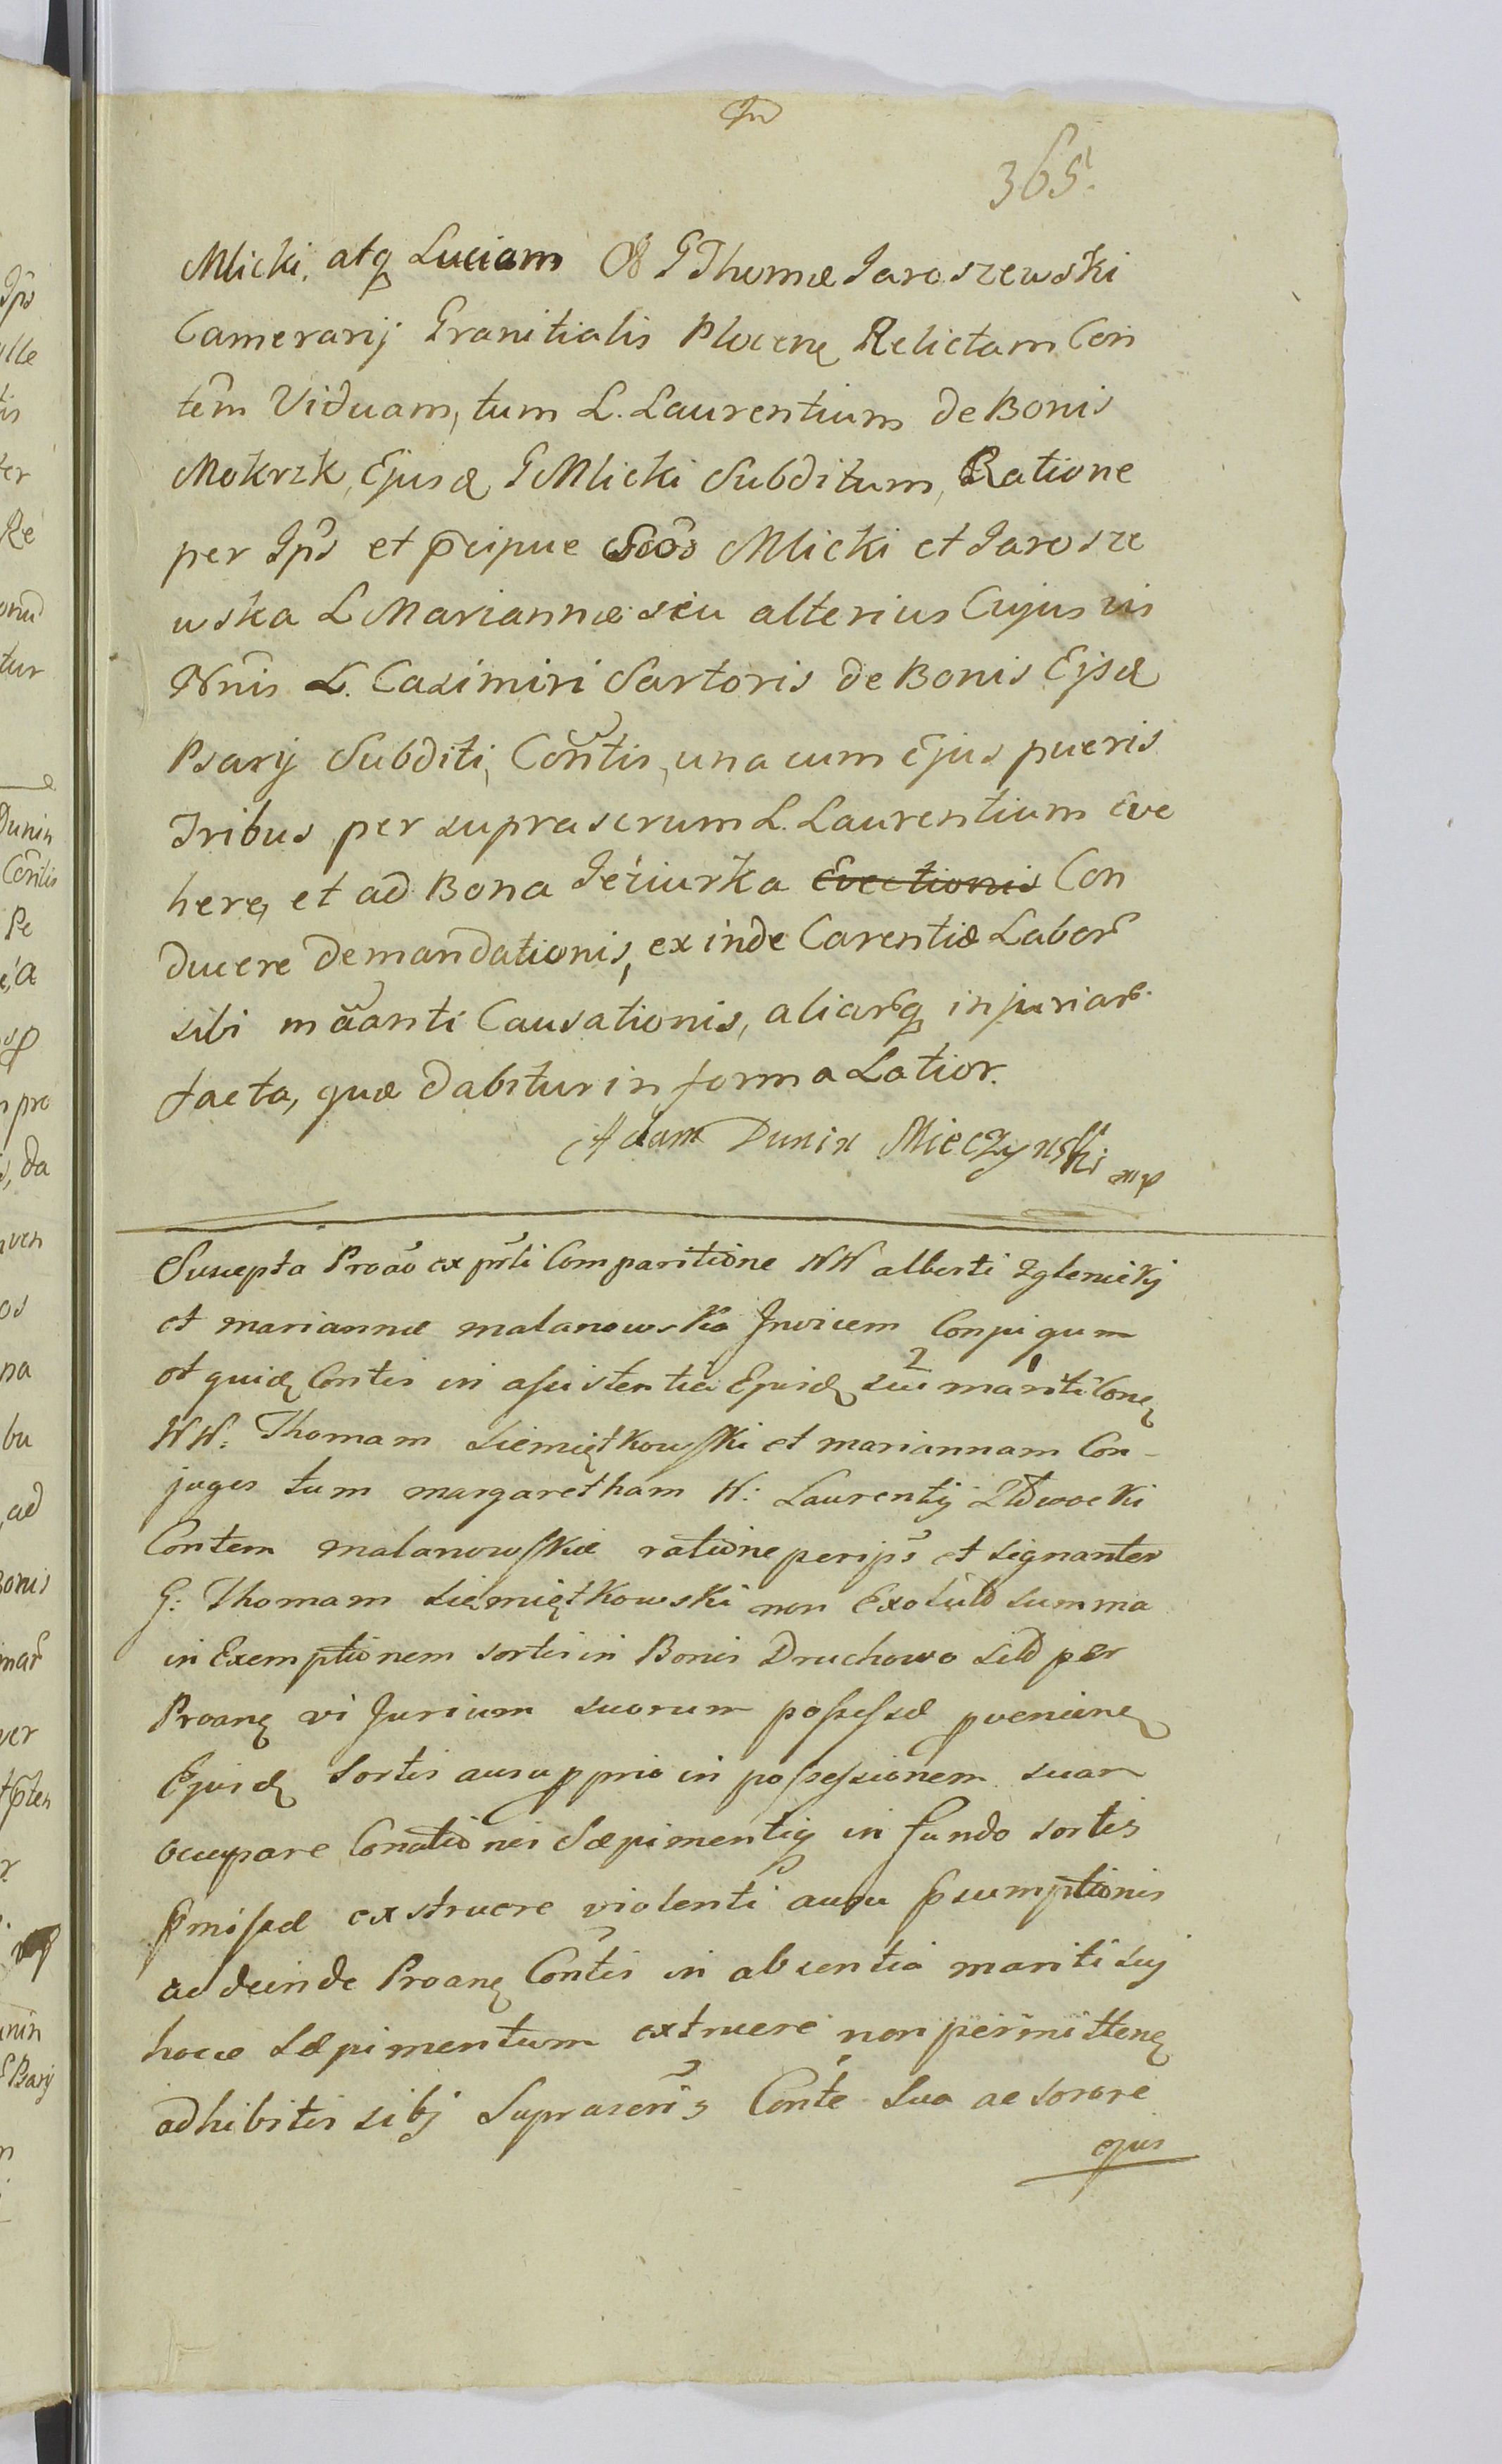 365.
Mlicki, atq Luciam Ol G Thomæ Jaroszewski
Camerarij Granitialis Plocenę Relictam Con
tem Viduam, tum L. Laurentium de Bonis
Mokrzk, Ejusd, G Mlicki Subditum, Ratione
per Ips et pcipue Mlicki et Jarosze
wska L Mariannæ seu alterius Cujus vis
Nnis L. Casimiri Sartoris de Bonis Ejsd
Psary Subditi, Contis, una cum Ejus pueris
Tribus per suprascrum L. Laurentium Eve
here, et ad Bona Jeziurka Evectionis Con
ducere demandationis, ex inde Carentiæ Labor
sibi māanti Causationis, aliarq injuriar
facta, quæ dabitur in forma Latior.
Adam Dunin Mieczynski mp
Suscepta Proao ex prti Comparitione WW alberti Zglenickij
et mariannæ malanowska Invicem Conjugum
et quid Contis in assistentia Ejusd sui 2 mariti 1 Conę
WW: Thomam Siemiętkowski et mariannam Con-
juges tum margaretham W: Laurentij
Contem malanowskie ratione per ips et signanter
G: Thomam Siemiętkowski non Exoluto summa
in Exemptionem sortis in Bonis Druchowo sito per
Proanę vi Jurium suorum possessæ pveniene
Ejusd Sortis ausu pprio in possessionem suam
occupare Conationis Sæpimentiq in fundo sortis
pmissæ exstruere violenti ausu psumptionis
ac deinde Proanę Contis in absentia mariti sui
hocce Sæpimentum extruere non permittenę
adhibitis sibi Suprascris Conte sua ac sorore
ejus